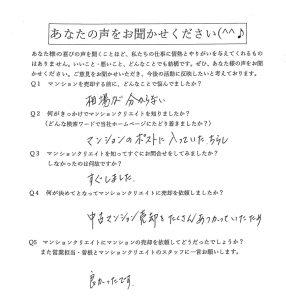 あなたの声をお聞かせください(^^♪
あなた様の喜びの声を聞くことほど、私たちの仕事に情熱とやりがいを与えてくれるもの
はありません。いいこと・悪いこと、どんなことでも結構です。ぜひ、あなた様の声をお聞
かせください。ご意見をお聞かせいただき、今後の活動に反映したいと考えております。
Q1 マンションを売却する前に、どんなことで悩んでましたか?
相場が分からない
Q2 何がきっかけでマンションクリエイトを知りましたか?
(どんな検索ワードで当社ホームページにたどり着きましたか?)
マンションのポストに入っていたちらし
Q3 マンションクリエイトを知ってすぐにお問合せをしてみましたか?
しなかったのは何故ですか?
すぐしました。
Q4 何が決めてとなってマンションクリエイトに売却を依頼しましたか?
中古マンション売却をたくさんあつかっていたため
Q5 マンションクリエイトにマンションの売却を依頼してどうだったでしょうか?
また営業担当・曽根とマンションクリエイトのスタッフに一言お願いします。
良かったです。